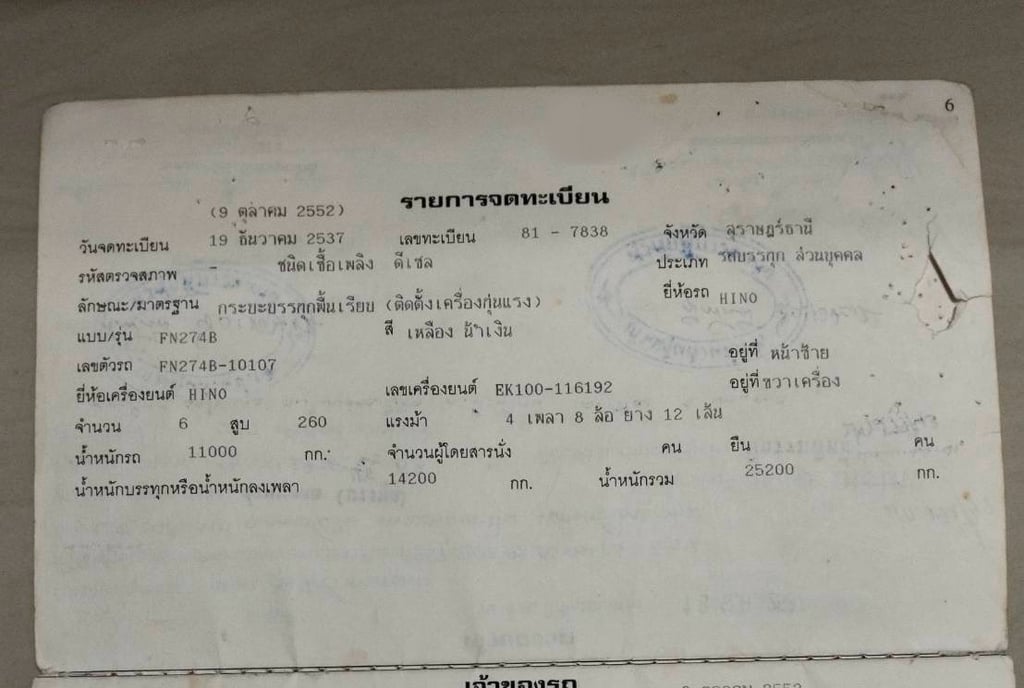 6
รายการจดทะเบียน
(9 ตุลาคม 2552)
วันจดทะเบียน 19 ธันวาคม 2537 เลขทะเบียน 81 - 7838 จังหวัด สุราษฎร์ธานี
รหัสตรวจสภาพ - ชนิดเชื้อเพลิง ดีเซล ประเภท รถบรรทุก ส่วนบุคคล
ลักษณะ/มาตรฐาน กระบะบรรทุกพื้นเรียบ (ติดตั้งเครื่องทุ่นแรง) ยี่ห้อรถ HINO
แบบ/รุ่น FN274B สี เหลือง น้ำเงิน
เลขตัวรถ FN274B-10107 อยู่ที่ หน้าซ้าย
ยี่ห้อเครื่องยนต์ HINO เลขเครื่องยนต์ EK100-116192 อยู่ที่ ขวาเครื่อง
จำนวน 6 สูบ 260 แรงม้า 4 เพลา 8 ล้อ ยาง 12 เส้น
น้ำหนักรถ 11000 กก. จำนวนผู้โดยสารนั่ง คน ยืน คน
น้ำหนักบรรทุกหรือน้ำหนักลงเพลา 14200 กก. น้ำหนักรวม 25200 กก.
เจ้าของรถ